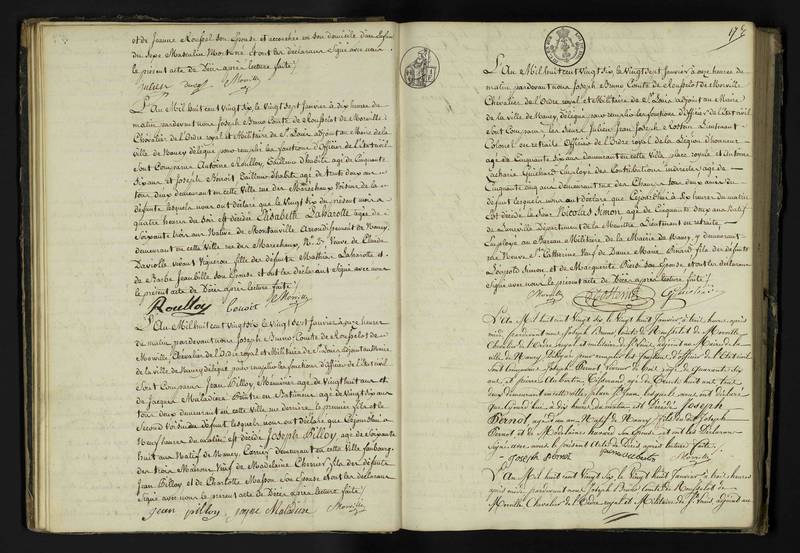 et de Jeanne Roussel son Epouse et accouchée en son domicile d'un Enfant
du Sexe Masculin Mort né et ont les déclarans Signé avec nous
le présent acte de Décès après lecture faite
Morville
L'An Mil huit cent Vingt Six le Vingt Sept Janvier à dix heures du
matin pardevant nous Joseph Bruno Comte de Rousselot de Morville
Chevalier de l'Ordre royal et Militaire de St Louis adjoint au Maire de la
Ville de Nancy délégué pour remplir les fonctions d'Officier de l'Etat civil
Sont Comparus Antoine Roulloy, Tailleur d'habits âgé de Cinquante
Six ans et Joseph Benoit Tailleur d'habits âgé de trente deux ans
tous deux demeurant en cette Ville rue des Maréchaux Voisins de la
défunte lesquels nous ont déclaré que le Vingt Six du présent mois à
quatre heures du Soir est décédée Elisabeth Laharotte âgée de
Soixante trois ans Native de Montauville Arrondissement de Nancy,
demeurant en cette Ville rue des Maréchaux, Ve de Claude
vivant Vigneron fille des défunts Mathieu Laharotte et
de Barbe son Epouse et ont les déclarans Signé avec nous
le présent acte de Décès après lecture faite
Roulloy benoit Morville
L'An Mil huit cent Vingt Six le Vingt Sept Janvier à onze heures
du matin, pardevant nous Joseph Bruno Comte de Rousselot de
Morville, Chevalier de l'Ordre royal et Militaire de St Louis adjoint au Maire
de la ville de Nancy délégué pour remplir les fonctions d'Officier de l'Etat civil
Sont Comparus Jean Pilloy Menuisier âgé de Vingt huit ans et
de Jacques Maladière Peintre en Batimens âgé de Vingt Six ans
tous deux demeurant en cette Ville le premier fils et le
Second Voisin du défunt lesquels nous ont déclaré que Cejourd'hui à
Neuf heures du matin est décédé Joseph Pilloy, âgé de Soixante
huit ans Natif de Nancy, demeurant en cette Ville faubourg
des trois Maisons Veuf de Madelaine Cherrier fils des défunts
Jean Pilloy et de Charlotte Masson son Epouse et ont les déclarans
Signé avec nous le présent acte de Décès après lecture faite
jean pilloy Maladière Morville
17
L'An Mil huit cent Vingt Six, le Vingt Sept Janvier à onze heures du
matin pardevant nous Joseph Bruno Comte de Rousselot de Morville
Chevalier de l'Ordre royal et Militaire de St Louis adjoint au Maire
de la ville de Nancy, délégué pour remplir les fonctions d'Officier de l'Etat civil
Sont Comparus les Sieurs Julien Jean Joseph Lieutenant
Colonel en retraite Officier de l'Ordre royal de la Légion d'honneur
âgé de Cinquante Six ans demeurant en cette Ville place royale et Antoine
Zacharie Employé des Contributions indirectes âgé de
Cinquante cinq ans demeurant rue des Chanoines tous deux amis du
défunt lesquels nous ont déclaré que Cejourd'hui à Six heures du matin
est décédé le Sieur Nicolas Simon âgé de Cinquante deux ans Natif
de Lunéville Département de la Meurthe Lieutenant en retraite
Employé au Bureau Militaire de la Mairie de Nancy, y demeurant
rue Neuve Ste Catherine Veuf de Dame Marie fils des défunts
Léopold Simon et de Marguerite son Epouse et ont les déclarans
Signé avec nous le présent acte de Décès après lecture faite
Morville
L'An Mil huit cent Vingt Six le Vingt huit Janvier, à trois heures après
midi pardevant nous Joseph Bruno Comte de Rousselot de Morville
Chevalier de l'Ordre royal et Militaire de St Louis, adjoint au Maire de la
ville de Nancy, délégué pour remplir les fonctions d'officier de l'Etat civil
Sont Comparus Joseph Pernot âgé de quarante Six
ans, et Pierre Aubertin, Tisserand âgé de Trente huit ans tous
deux demeurant en cette ville, place St Jean lesquels nous ont déclaré
que Cejourd'hui à dix heures du matin est décédé Joseph
Pernot âgé d'un an Natif de Nancy fils de Joseph
Pernot et de Madelaine son Epouse et ont les déclarans
Signé avec nous le présent Acte de Décès après lecture faite
Joseph Pernot Morville
L'An Mil huit cent Vingt Six, le Vingt huit Janvier à trois heures
après midi pardevant nous Joseph Bruno Comte de Rousselot de
Morville Chevalier de l'Ordre royal et Militaire de St Louis, adjoint au